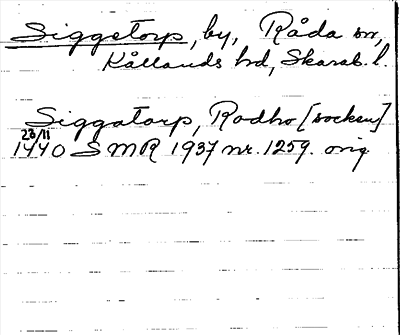 Siggetorp, by, Råda sn,
Kållands hd, Skarab. l.
Siggatorp, Rodho [socken]
23/11
1440 SMR 1937 nr. 1259. orig